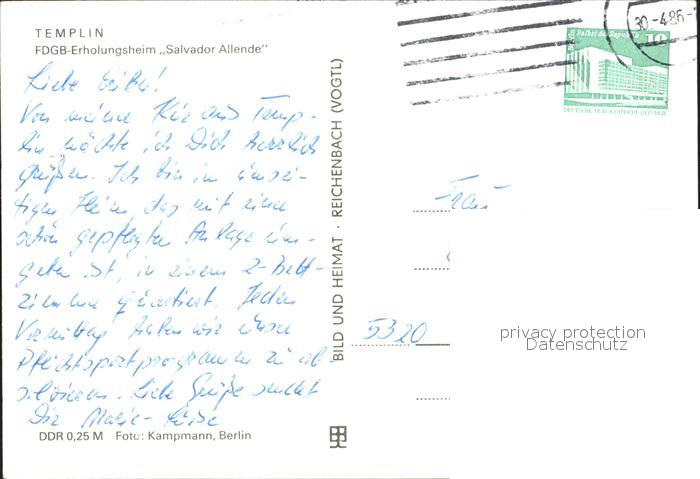 TEMPLIN
FDGB-Erholungsheim „Salvador Allende"
Liebe
Von meiner Kur aus Temp-
lin möchte ich Dich herzlich
grüßen. Ich bin in umsei-
tigen Heim, das mit einer
schön gepflegten Anlage um-
geben ist, in einem 2-Bett-
zimmer quartiert. Jeden
Vormittag haben wir unser
Pflichtsportprogramm zu ab-
solvieren. Liebe Grüße sendet
Dir Marie-Luise
DDR 0,25 M Foto: Kampmann, Berlin
BILD UND HEIMAT · REICHENBACH (VOGTL)
30-4.86-
Palast der Republik 10
DEUTSCHE DEMOKRATISCHE REPUBLIK
Frau
5320
privacy protection
Datenschutz